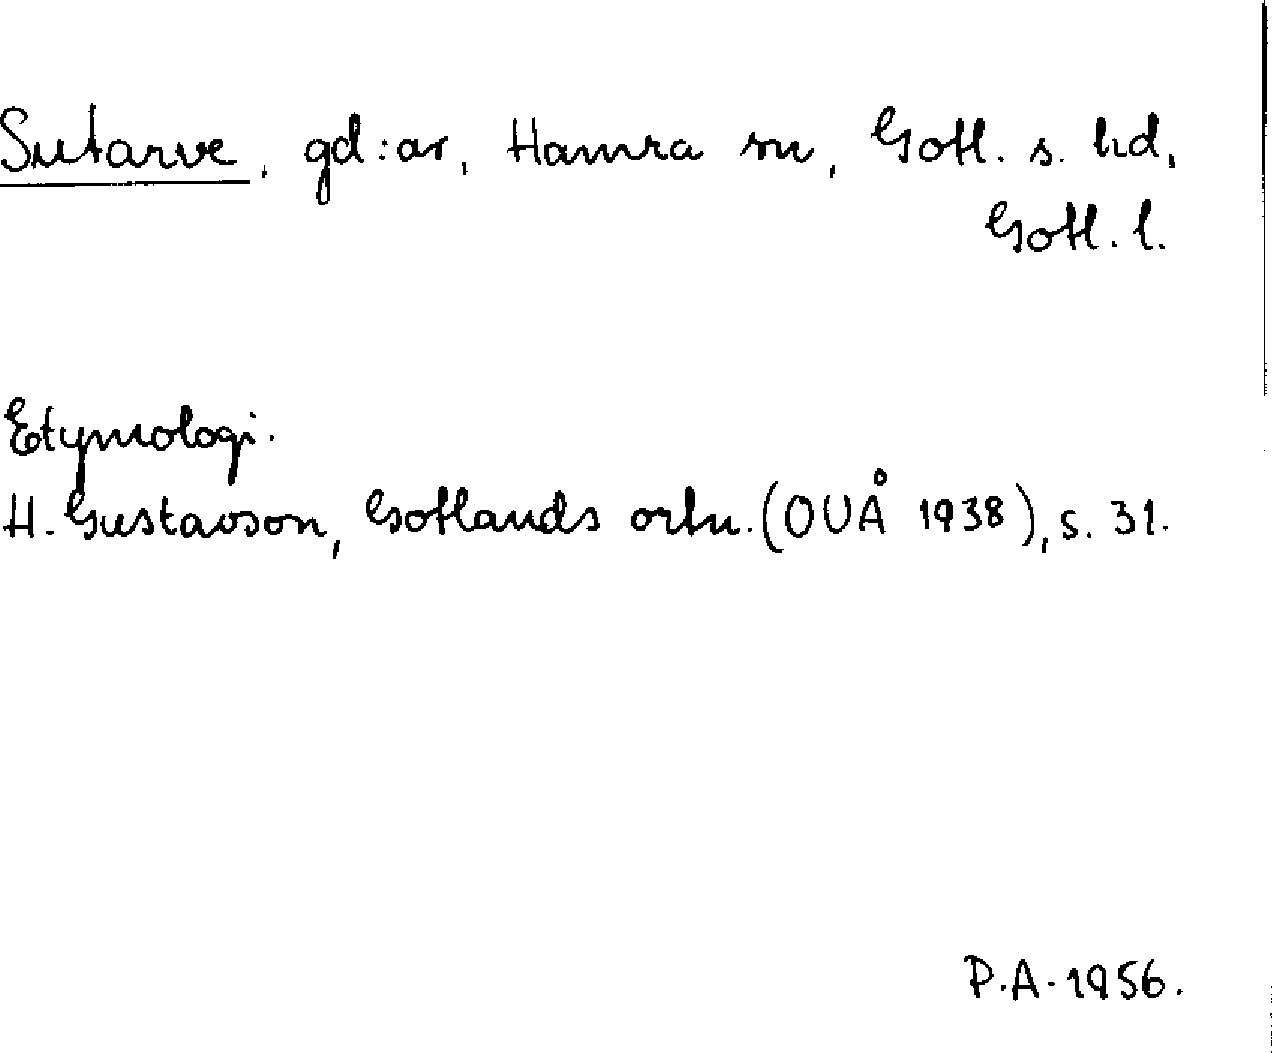 Sutarve, gd:ar, Hamra sn, Gotl. s. hd,
Gotl. l.
Etymologi.
H. Gustavson, Gotlands ortn. (OUÅ 1938), s. 31.
P.A. 1956.